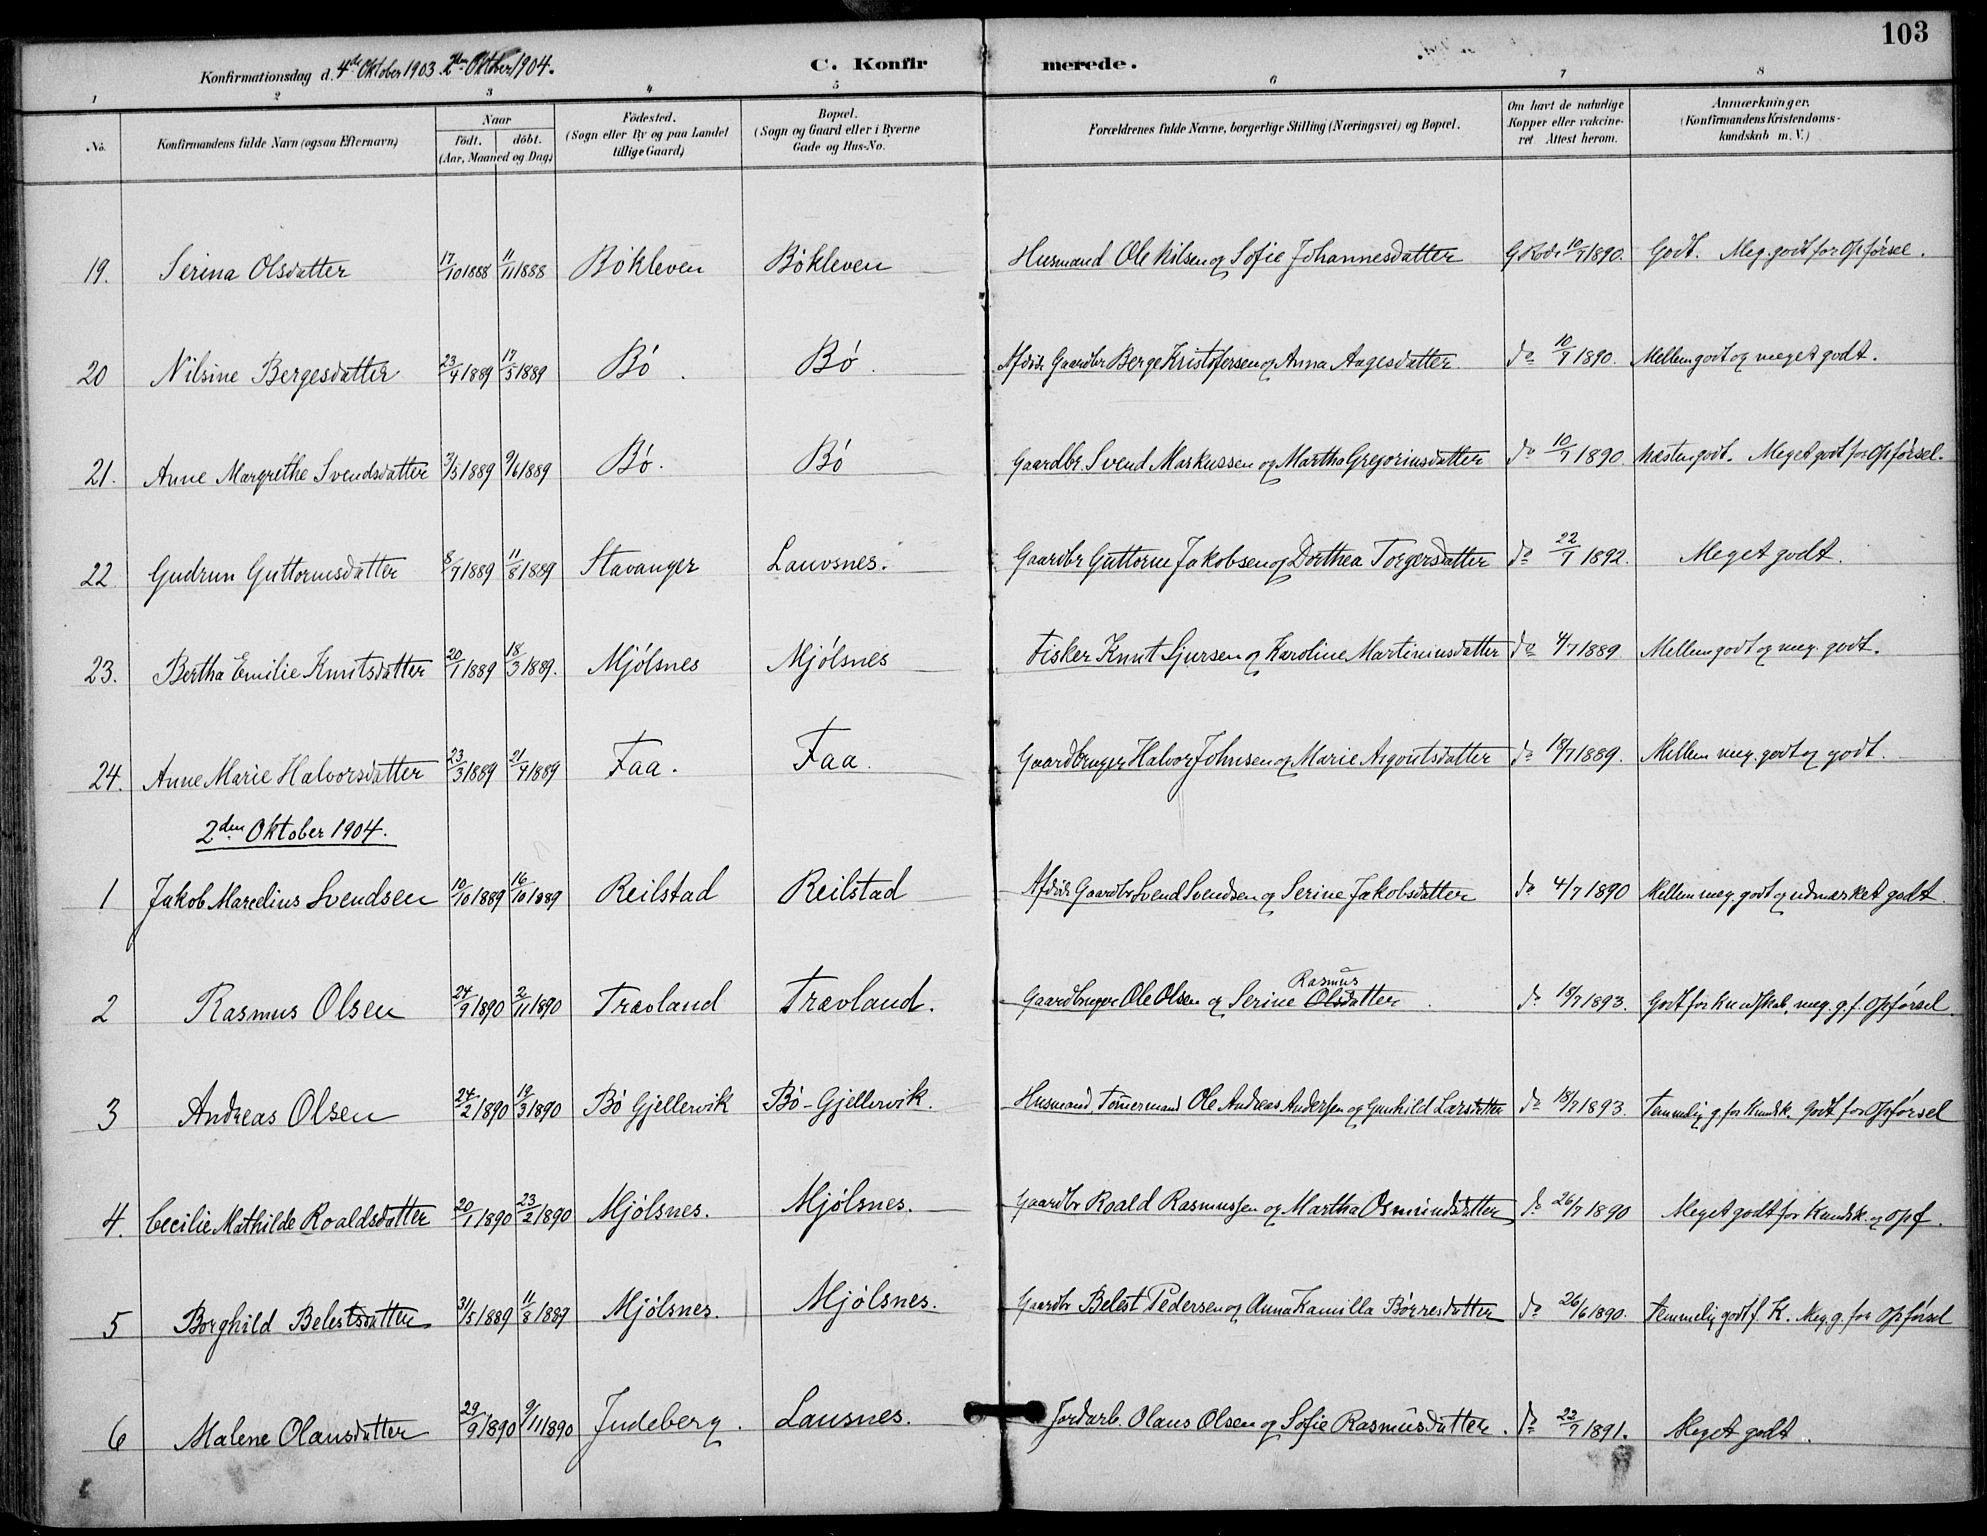 103
Konfirmationsdag d. 4de Oktober 1903. 2den Oktober 1904. C. Konfirmerede.
1 2 3 4 5 6 7 8
No. Konfirmandens fulde Navn (ogsaa Efternavn) Naar födt. döbt. (Aar, Maaned og Dag) Födested. (Sogn eller By og paa Landet tillige Gaard) Bopæl. (Sogn og Gaard eller i Byerne Gade og Hus-No. Forældrenes fulde Navne, borgerlige Stilling (Næringsvei) og Bopæl. Om havt de naturlige Kopper eller vakcineret Attest herom. Anmærkninger. (Konfirmandens Kristendomskundskab m. V.)
19. Serina Olsdatter 17/10 1888 11/11 1888 Bökleven Bökleven Husmand Ole Nilsen og Sofie Johannesdatter 10/9 1890. Godt. Meg. godt for Opförsel.
20 Nilsine Bergesdatter 23/4 1889 17/5 1889 Bö. Bö. Afdöde Gaardbr Berge Kristofersen og Anna Aagesdatter. do 10/9 1890. Mellem godt og meget godt.
21. Anne Margrethe Svendsdatter 3/5 1889 9/6 1889 Bö. Bö Gaardbr. Svend Markussen og Martha Gregoriusdatter do 10/9 1890 Næsten godt. Meget godt for Opförsel.
22 Gudrun Guttormsdatter 8/7 1889 11/8 1889 Stavanger Lauvsnes. Gaardbr Guttorm Jakobsen og Dorthea Torgersdatter do 22/7 1892. Meget godt.
23. Bertha Emilie Knutsdatter 20/1 1889 18/3 1889. Mjölsnes Mjölsnes Fisker Knut Sjursen og Karoline Martiniusdatter do 4/7 1889. Mellem godt og meg. godt.
24. Anne Marie Halvorsdatter 23/3 1889 21/4 1889 Faa. Faa. Gaardbruger Halvor Johnsen og Marie Asgoutsdatter do 18/7 1889. Mellem meg. godt og godt.
2den Oktober 1904.
1 Jakob Marcelius Svendsen 10/10 1889 16/10 1889 Reilstad Reilstad Afdöde Gaardbr Svend Svendsen og Serine Jakobsdatter do 4/7 1890 Mellem meg. godt og udmærket godt.
2 Rasmus Olsen 24/9 1890 2/11 1890 Trævland Trævland. Gaardbruger Ole Olsen og Serine Rasmus Olsdatter. do 18/7 1893. Godt for Kundskab, meg. g. f. Opförsel.
3 Andreas Olsen 24/2 1890 19/3 1890 Bö Gjellervik Bö-Gjellervik. Husmand, Tömmermand Ole Andreas Andersen og Gunhild Larsdatter do 18/7 1893. Temmelig g. for Kundsk. Godt for Opförsel
4. Cecilie Mathilde Roaldsdatter 20/1 1890 23/2 1890 Mjölsnes. Mjölsnes. Gaardbr Roald Rasmussen og Martha Osmundsdatter do 26/7 1890 Meget godt for Kundsk. og Opf.
5 Borghild Belestsdatter 31/5 1889 11/8 1889 Mjölsnes. Mjölsnes. Gaardbr Belest Pedersen og Anna Kamilla Börresdatter do 26/6 1890. Temmelig godt f. K. Meg. g. for Opförsel
6 Malene Olausdatter 29/9 1890 9/11 1890 Judeberg. Lausnes. Jordarb. Olaus Olsen og Sofie Rasmusdatter. do 22/7 1891. Meget godt.